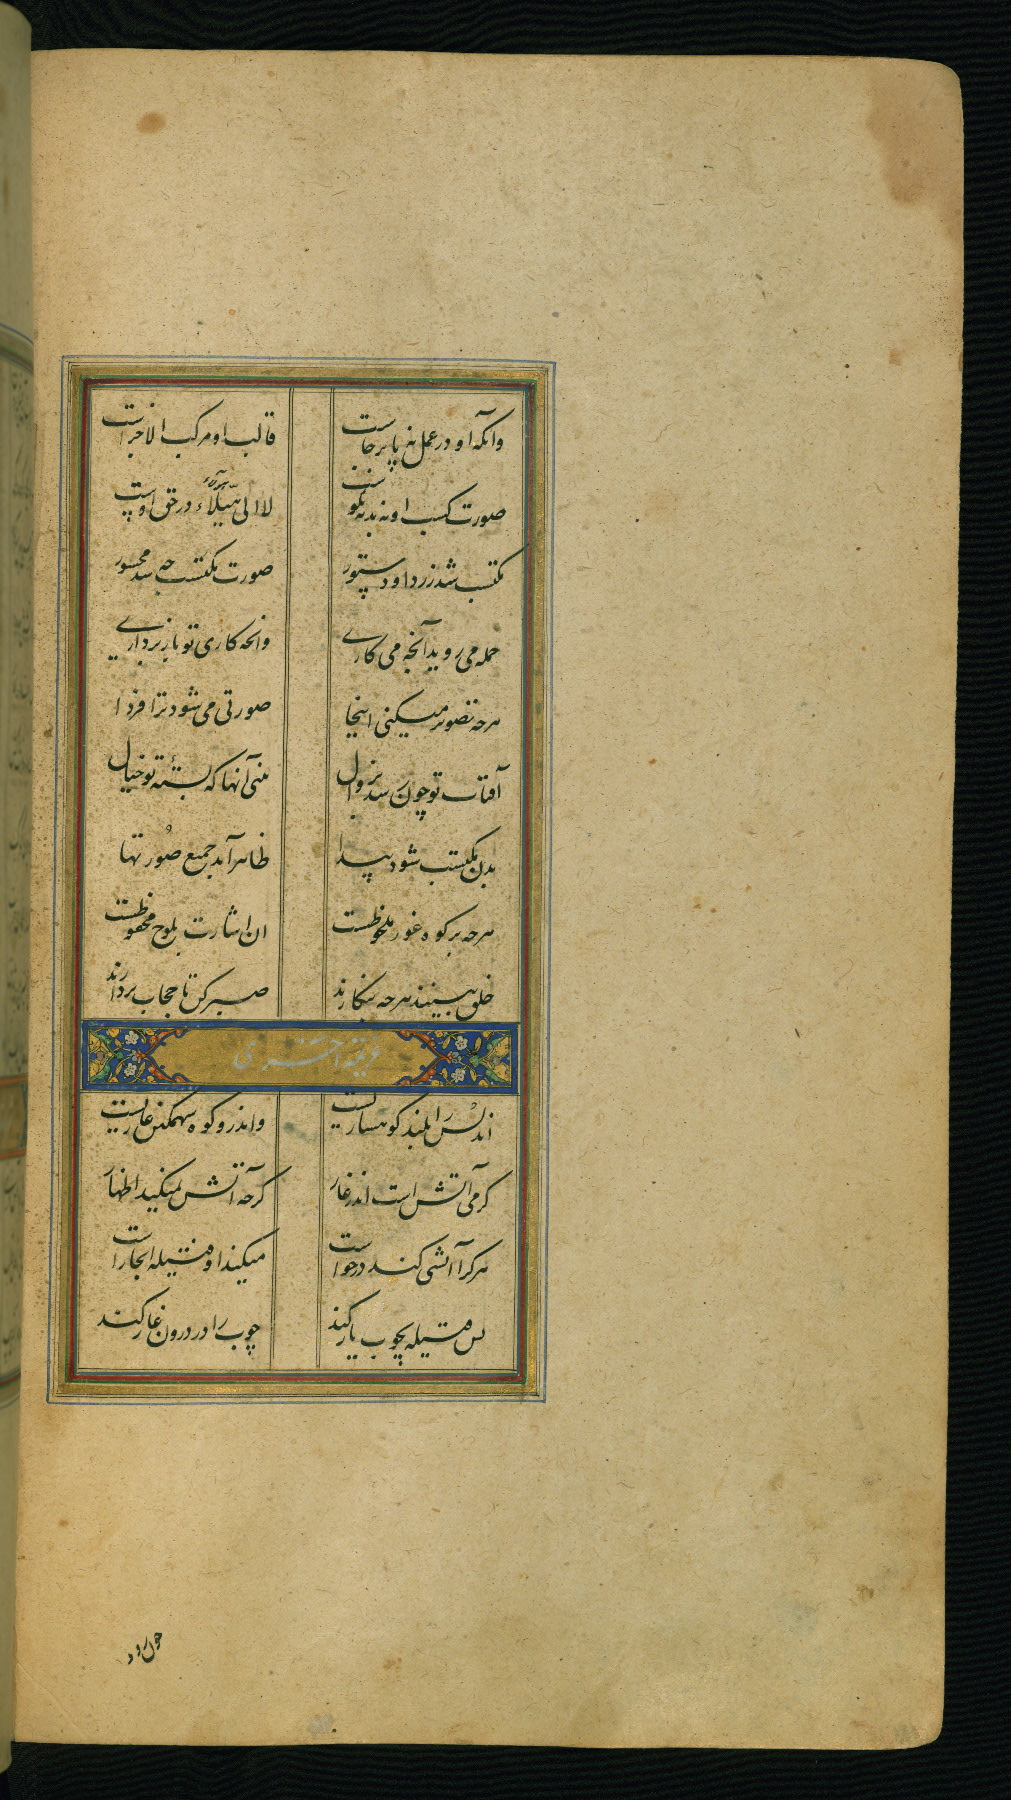 وانکه او در عمل نه پا برجاست
قالب او مرکب الاجزاست
صورت کسب او نه بد نه نکوست
لا الی هٰؤلاء در حق اوست
مکتسب شد ز رد او دستور
صورت مکتسب چه سد محسور
جمله می روید آنچه می کاری
وانچه کاری تو باز برداری
هرچه تصویر میکنی اینجا
صورتی می شود ترا فردا
آفتاب تو چون رسد بزوال
بینی آنها که بستهٔ تو خیال
بدن مکتسب شود پیدا
ظاهر آید جمیع صورتها
هرچه بر کوه غور ملحوظست
ان اشارت بلوح محفوظست
خلق بینند هرچه بنگارند
صبر کن تا حجاب بردارند
غریبه اخری
اندلس را بلند کوهساریست
واندرو کوه سهمگین غاریست
گرمی آتش است اندر غار
گرچه آتش نمیکند اظهار
هر کرا آتشی کند درخواست
میکند او فتیله انجا راست
بس فتیله بچوب یار کند
چوب را در درون غار کند
چون رود